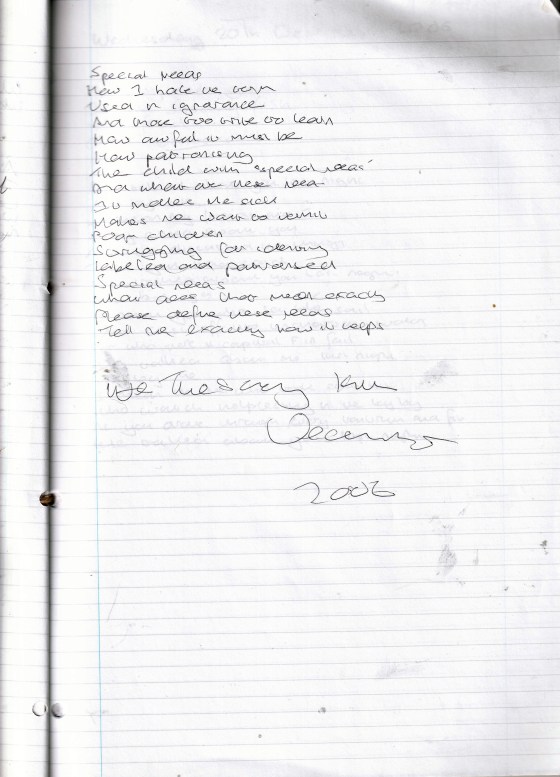 Special needs
How I hate the term
Used in ignorance
And those too to learn
How awful it must be
How patronising
The child with "special needs"
And what are these need
It makes me sick
Makes me want to vomit
Poor children
Struggling for identity
Labelled and patronised
Special needs
What does that mean exactly
Please define these needs
Tell me exactly how it helps
December
2006